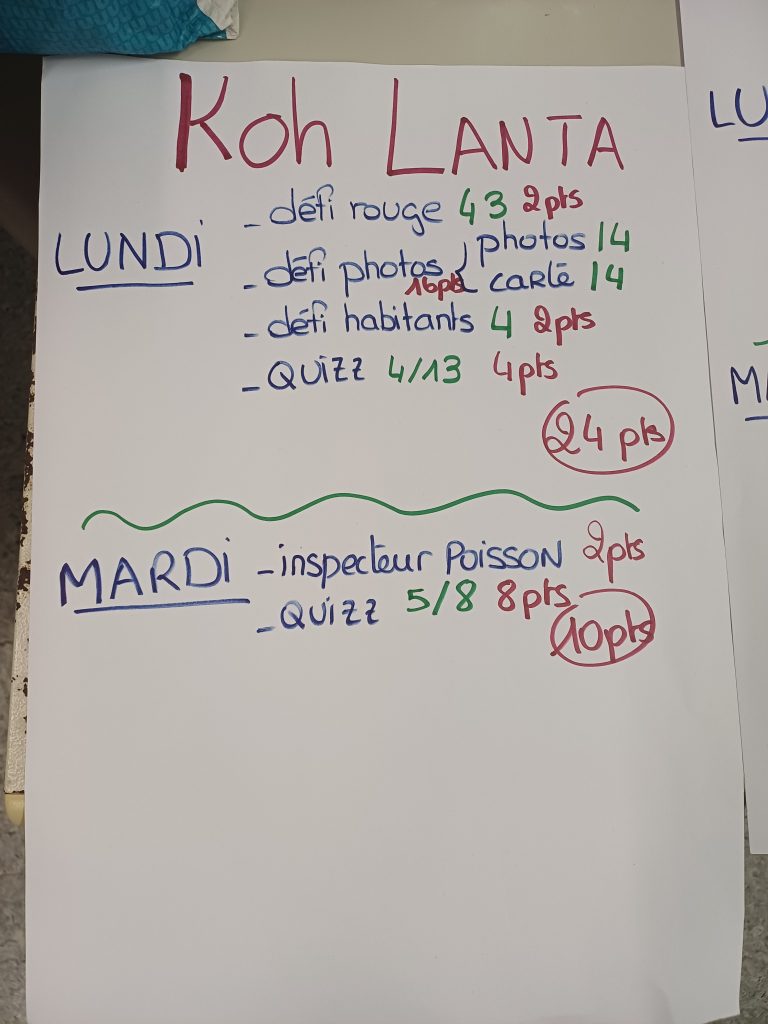 Koh LANTA
LUNDi
- défi rouge 43 2pts
- défi photos { photos 14
16pts carte 14
- défi habitants 4 2pts
- QUiZZ 4/13 4pts
24 pts
MARDi - inspecteur POiSSON 2pts
- QUiZZ 5/8 8pts
10pts
LU
MA